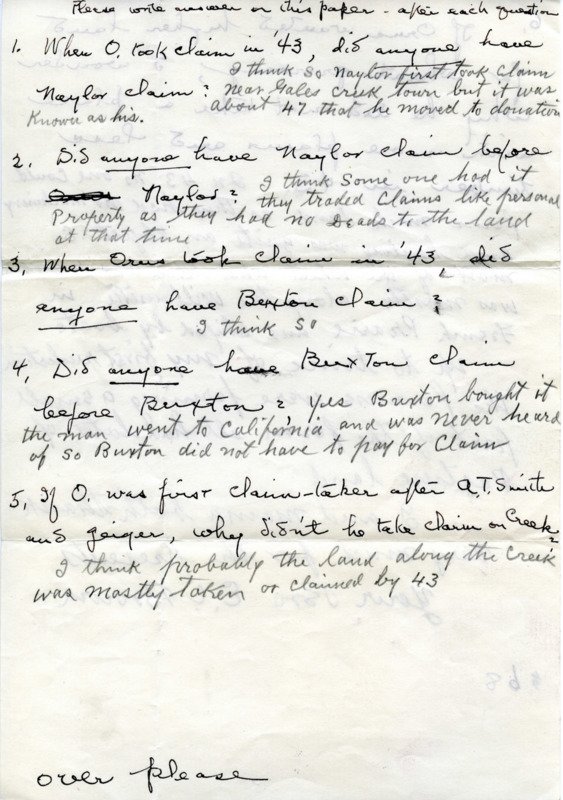 Please write answer on this paper - after each question
1. When O. took claim in '43, did anyone have
I think so Naylor first took Claim
Naylor claim? near Gales Creek town but it was
Known as his. about 47 that he moved to donation
2, Did anyone have Naylor claim before
Naylor? I think Some one had it
they traded Claims like personal
Property as they had no Deads to the land
at that time
3, When Orus took claim in '43, did
anyone have Buxton claim?
I think so
4, Did anyone have Buxton claim
before Buxton? Yes Buxton bought it
the man went to California and was never heard
of so Buxton did not have to pay for Claim
5, If O. was first claim-taker after A.T. Smith
and geiger, why didn't he take claim on Creek?
I think probably the land along the Creek
was mostly taken or claimed by 43
over please